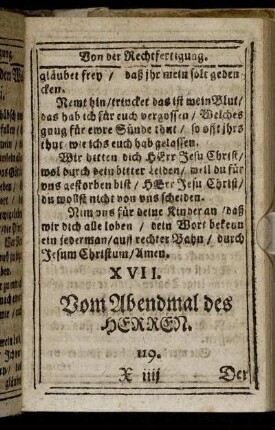 Von der Rechtfertigung.
gläubet frey / daß jhr mein solt geden
cken.
Nemt hin / trincket das ist mein Blut /
das hab ich für euch vergossen / Welches
gnug für ewre Sünde thut / so offt jhrs
thut / wie ichs euch hab gelassen.
Wir bitten dich HErr Jesu Christ /
wol durch dein bitter Leiden / weil du für
uns gestorben bist / HErr Jesu Christ /
du wollst nicht von uns scheiden.
Nim uns für deine Kinder an / daß
wir dich alle loben / dein Wort bekenn
ein jederman / auff rechter Bahn / durch
Jesum Christum / Amen.
XVII.
Vom Abendmal des
HERREN.
119.
X iiij Der